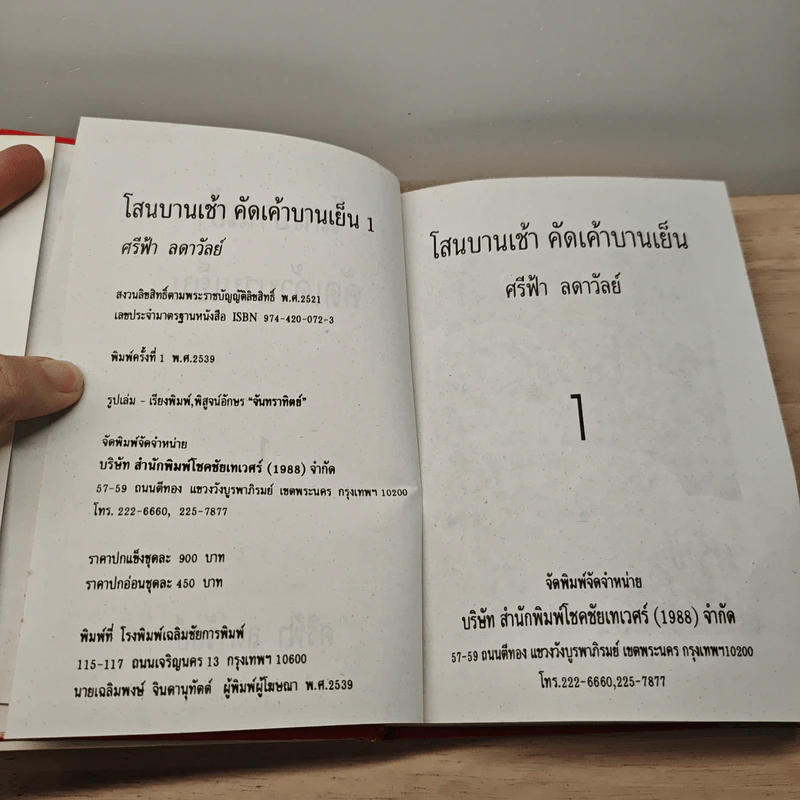 โสนบานเช้า คัดเค้าบานเย็น 1
ศรีฟ้า ลดาวัลย์
สงวนลิขสิทธิ์ตามพระราชบัญญัติลิขสิทธิ์ พ.ศ.2521
เลขประจำมาตรฐานหนังสือ ISBN 974-420-072-3
พิมพ์ครั้งที่ 1 พ.ศ.2539
รูปเล่ม - เรียงพิมพ์,พิสูจน์อักษร "จันทราทิตย์"
จัดพิมพ์จัดจำหน่าย
บริษัท สำนักพิมพ์โชคชัยเทเวศร์ (1988) จำกัด
57-59 ถนนตีทอง แขวงวังบูรพาภิรมย์ เขตพระนคร กรุงเทพฯ 10200
โทร. 222-6660, 225-7877
ราคาปกแข็งชุดละ 900 บาท
ราคาปกอ่อนชุดละ 450 บาท
พิมพ์ที่ โรงพิมพ์เฉลิมชัยการพิมพ์
115-117 ถนนเจริญนคร 13 กรุงเทพฯ 10600
นายเฉลิมพงษ์ จินดานุทัตต์ ผู้พิมพ์ผู้โฆษณา พ.ศ.2539
โสนบานเช้า คัดเค้าบานเย็น
ศรีฟ้า ลดาวัลย์
1
จัดพิมพ์จัดจำหน่าย
บริษัท สำนักพิมพ์โชคชัยเทเวศร์ (1988) จำกัด
57-59 ถนนตีทอง แขวงวังบูรพาภิรมย์ เขตพระนคร กรุงเทพฯ10200
โทร.222-6660,225-7877